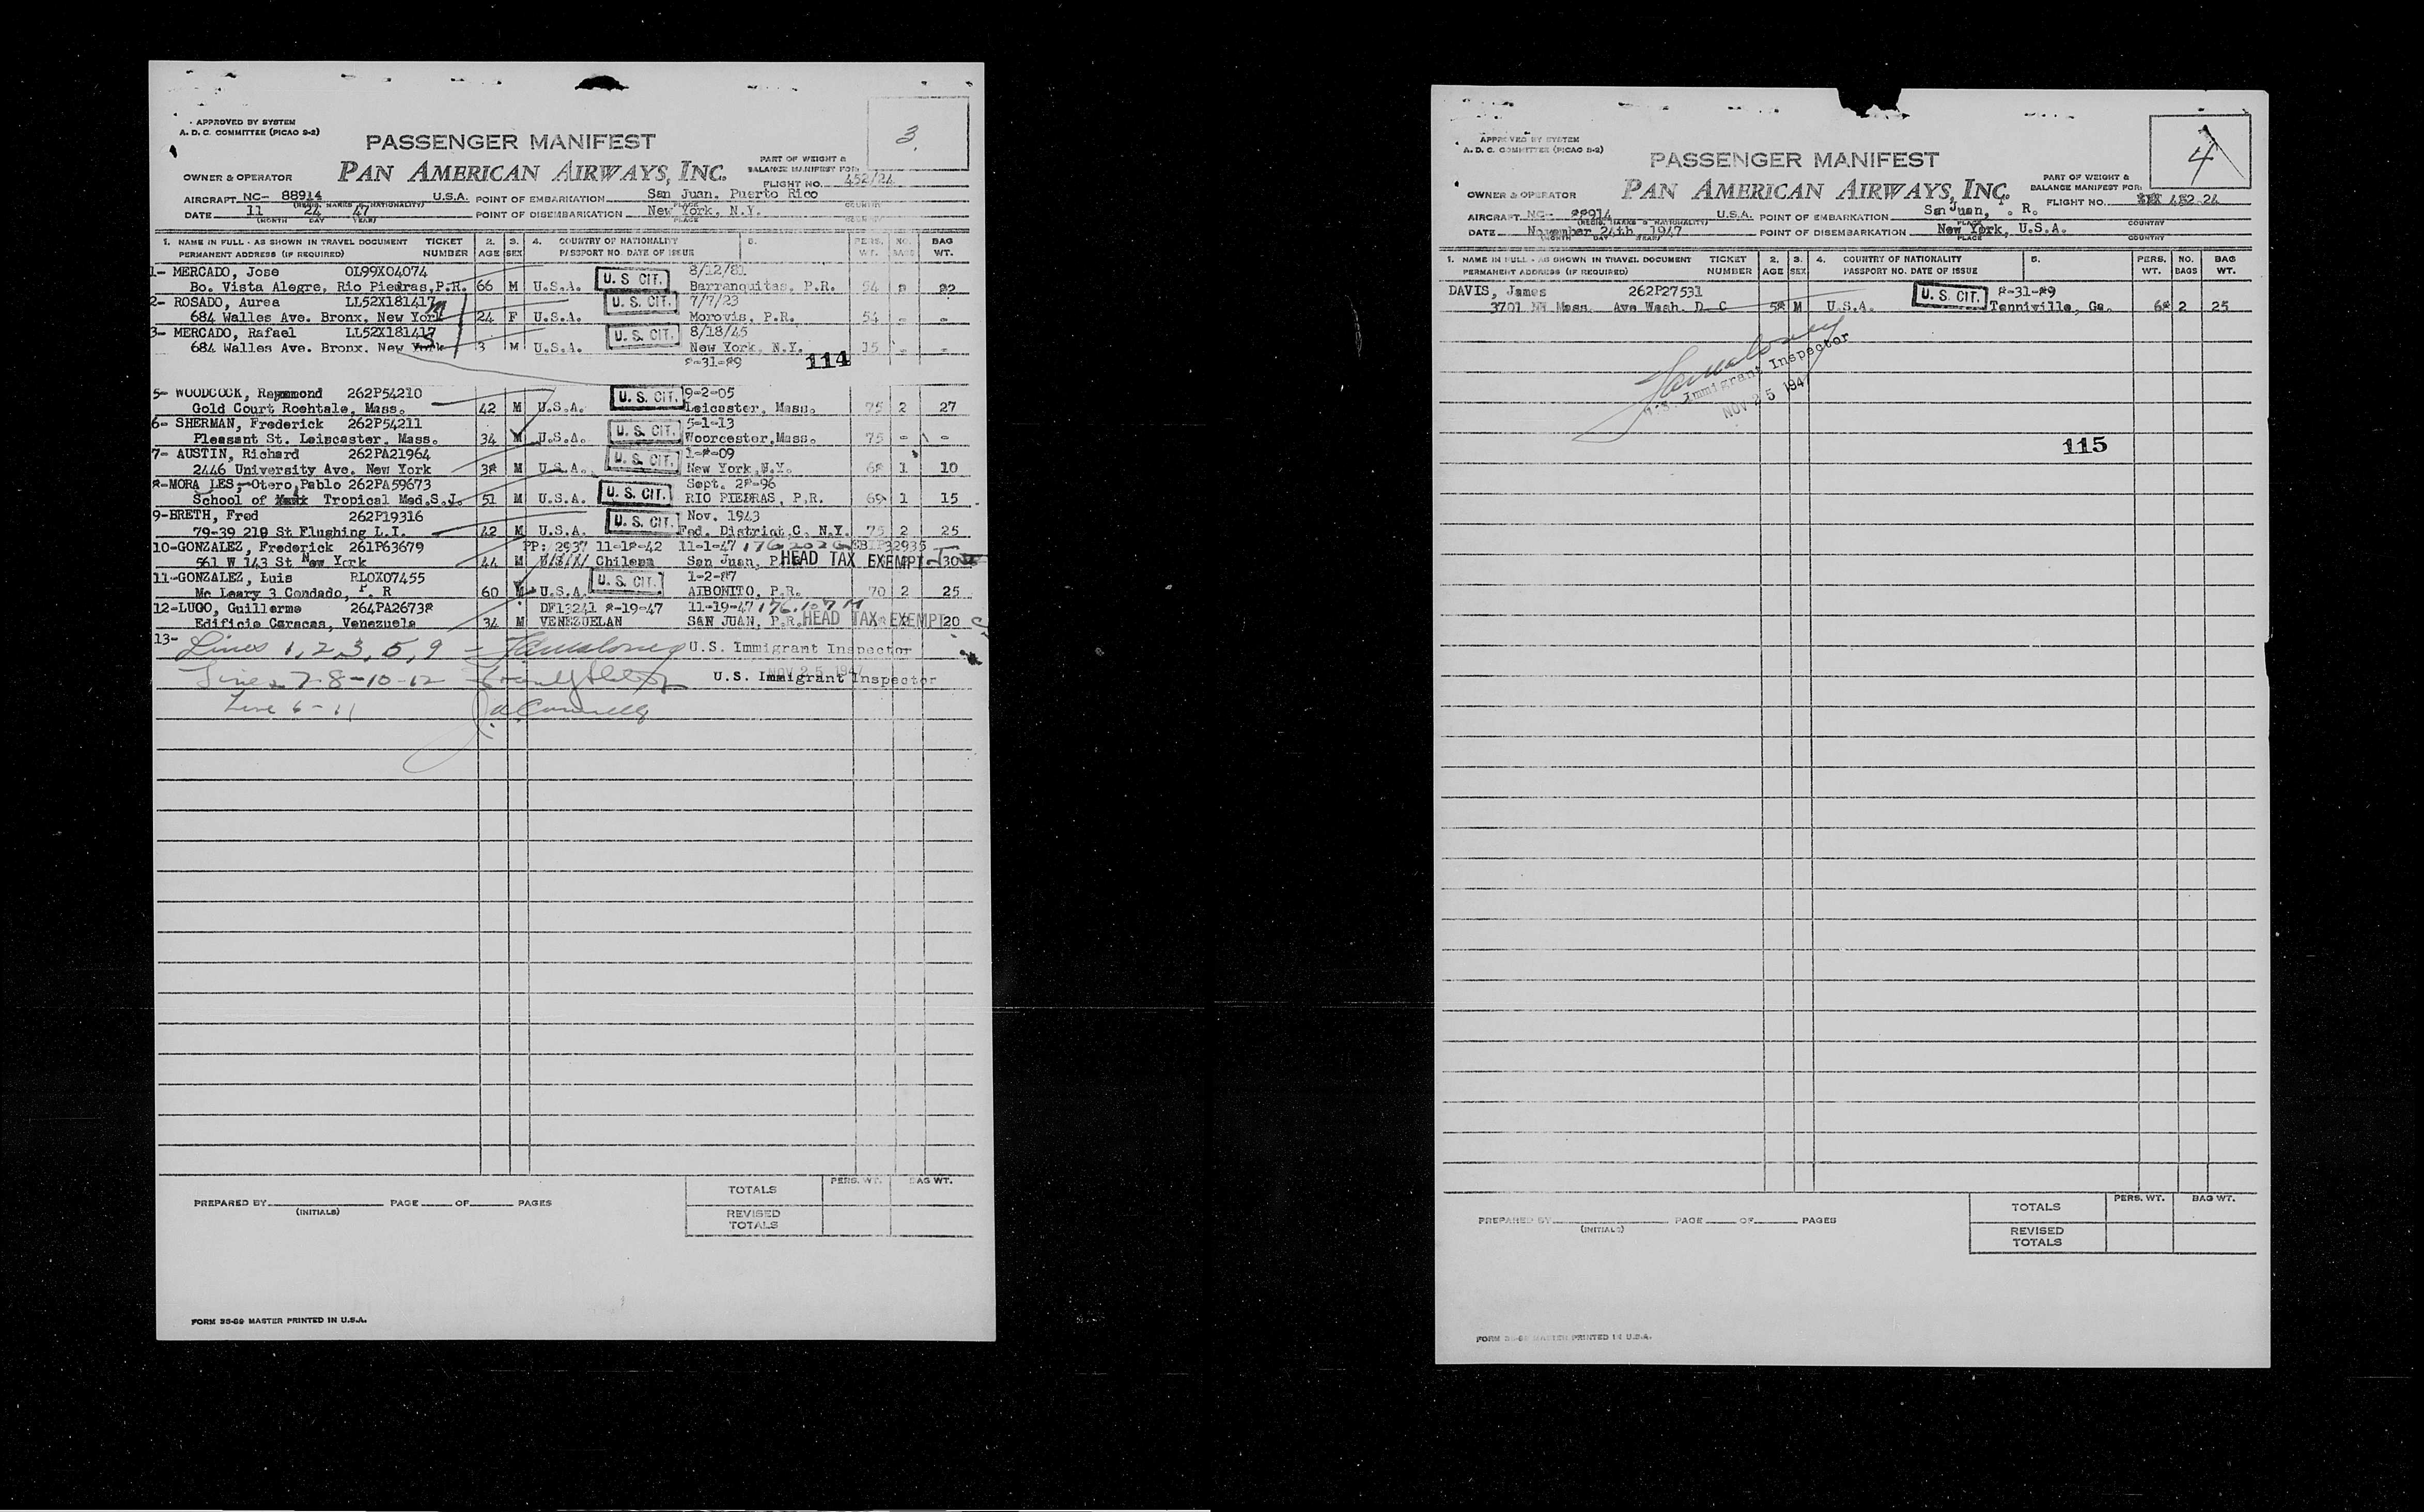 APPROVED BY SYSTEM
A. D. C. COMMITTEE (PICAO 9-2)
3.
PASSENGER MANIFEST
PAN AMERICAN AIRWAYS, INC.
PART OF WEIGHT &
BALANCE MANIFEST FOR:
FLIGHT NO. 452/24
OWNER & OPERATOR
AIRCRAFT NC- 88914 U.S.A. POINT OF EMBARKATION San Juan. Puerto Rico
(REGIS. MARKS & NATIONALITY) PLACE COUNTRY
DATE 11 24 47 POINT OF DISEMBARKATION New York, N.Y.
(MONTH DAY YEAR) PLACE COUNTRY
1. NAME IN FULL - AS SHOWN IN TRAVEL DOCUMENT TICKET 2. 3. 4. COUNTRY OF NATIONALITY 5. PERS. NO. BAG
PERMANENT ADDRESS (IF REQUIRED) NUMBER AGE SEX PASSPORT NO. DATE OF ISSUE WT. BAGS WT.
1- MERCADO, Jose OL99X04074 8/12/81
Bo. Vista Alegre, Rio Piedras,P.R. 66 M U.S.A. U. S. CIT. Barranquitas, P.R. 54
2- ROSADO, Aurea LL52X181417 U. S. CIT. 7/7/23
684 Walles Ave. Bronx. New York 24 F U.S.A. Morovis, P.R. 54 -
3- MERCADO, Rafael LL52X181417 8/18/45
684 Walles Ave. Bronx. New York 3 M U.S.A. U. S. CIT. New York, N.Y. 15 - -
*-31-*9 114
5- WOODCOCK, Raymmond 262P54210 9-2-05
Gold Court Rochtale, Mass. 42 M U.S.A. U. S. CIT. Leicester, Mass. 75 2 27
6- SHERMAN, Frederick 262P54211 5-1-13
Pleasant St. Leiscester. Mass. 34 M U.S.A. U. S. CIT. Woorcester,Mass. 75 - -
7- AUSTIN, Richard 262PA21964 1-*-09
2446 University Ave. New York 3* M U.S.A. U. S. CIT. New York,N.Y. 6* 1 10
*-MORA LES,-Otero,Pablo 262PA59673 Sept. 2*-96
School of Tropical Med.S.J. 51 M U.S.A. U. S. CIT. RIO PIEDRAS, P.R. 69 1 15
9-BRETH, Fred 262P19316 Nov. 1943
79-39 210 St Flushing L.I. 42 M U.S.A. U. S. CIT. Fed. District C, N.Y. 75 2 25
10-GONZALEZ, Frederick 261P63679 PP: 2937 11-1*-42 11-1-47
561 W 143 St New York 44 M Chilena San Juan, P. HEAD TAX EXEMPT 30
11-GONZALEZ, Luis RLOX07455 1-2-*7
Mc Leary 3 Condado, P. R 60 M U.S.A. U. S. CIT. AIBONITO, P.R. 70 2 25
12-LUGO, Guillermo 264PA2673* DF13241 *-19-47 11-19-47 176.107 M
Edificio Caracas, Venezuela 34 M VENEZUELAN SAN JUAN, P.R. HEAD TAX EXEMPT 20
13-
Lines 1, 2, 3, 5, 9 - U.S. Immigrant Inspector
NOV 25 1947
Lines 7-8-10-12 U.S. Immigrant Inspector
Line 6-11
TOTALS PERS. WT. BAG WT.
PREPARED BY PAGE OF PAGES
(INITIALS)
REVISED
TOTALS
FORM 35-69 MASTER PRINTED IN U.S.A.
APPROVED BY SYSTEM
A. D. C. COMMITTEE (PICAO 9-2)
4
PASSENGER MANIFEST
PAN AMERICAN AIRWAYS, INC.
PART OF WEIGHT &
BALANCE MANIFEST FOR:
FLIGHT NO. 452 24
OWNER & OPERATOR
AIRCRAFT NC- **914 U.S.A. POINT OF EMBARKATION San Juan, . R.
(REGIS. MARKS & NATIONALITY) PLACE COUNTRY
DATE November 24th 1947 POINT OF DISEMBARKATION New York, U.S.A.
(MONTH DAY YEAR) PLACE COUNTRY
1. NAME IN FULL - AS SHOWN IN TRAVEL DOCUMENT TICKET 2. 3. 4. COUNTRY OF NATIONALITY 5. PERS. NO. BAG
PERMANENT ADDRESS (IF REQUIRED) NUMBER AGE SEX PASSPORT NO. DATE OF ISSUE WT. BAGS WT.
DAVIS, James 262P27531 *-31-*9
3701 Mass. Ave Wash. D C 5* M U.S.A. U. S. CIT. Tenniville, Ga. 6* 2 25
U.S. Immigrant Inspector
NOV 25 1947
115
TOTALS PERS. WT. BAG WT.
PREPARED BY PAGE OF PAGES
(INITIALS)
REVISED
TOTALS
FORM 35-69 MASTER PRINTED IN U.S.A.